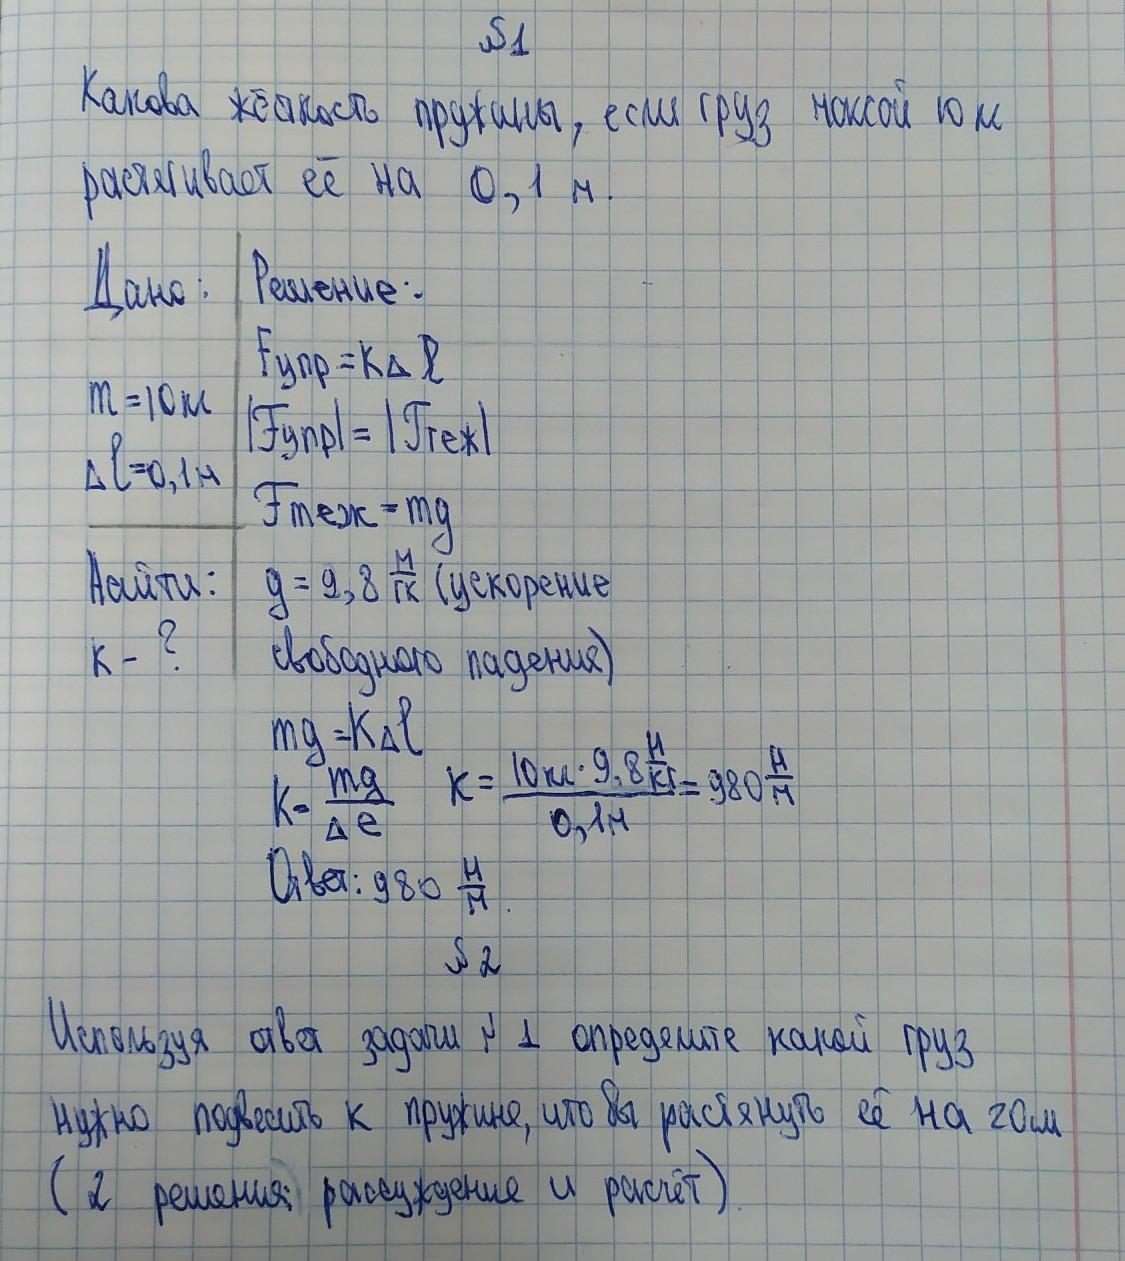 №1
Какова жёсткость пружины, если груз массой 10 кг
растягивает её на 0,1 м.
Дано: Решение:
Fупр = K∆l
m = 10 кг
|Fупр| = |Fтяж|
∆l = 0,1 м
Fтяж = mg
Найти: g = 9,8 Н/кг (ускорение
k - ? свободного падения)
mg = K∆l
K = mg/∆l K = 10 кг · 9,8 Н/кг / 0,1 м = 980 Н/м
Ответ: 980 Н/м.
№2
Используя ответ задачи №1 определите какой груз
нужно подвесить к пружине, что бы растянуть её на 20 см
(2 решения: рассуждение и расчёт).